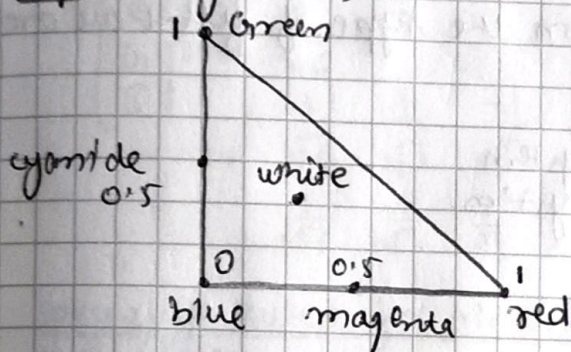 1 Green
cyanide
0.5
white
0
0.5
1
blue
magenta
red